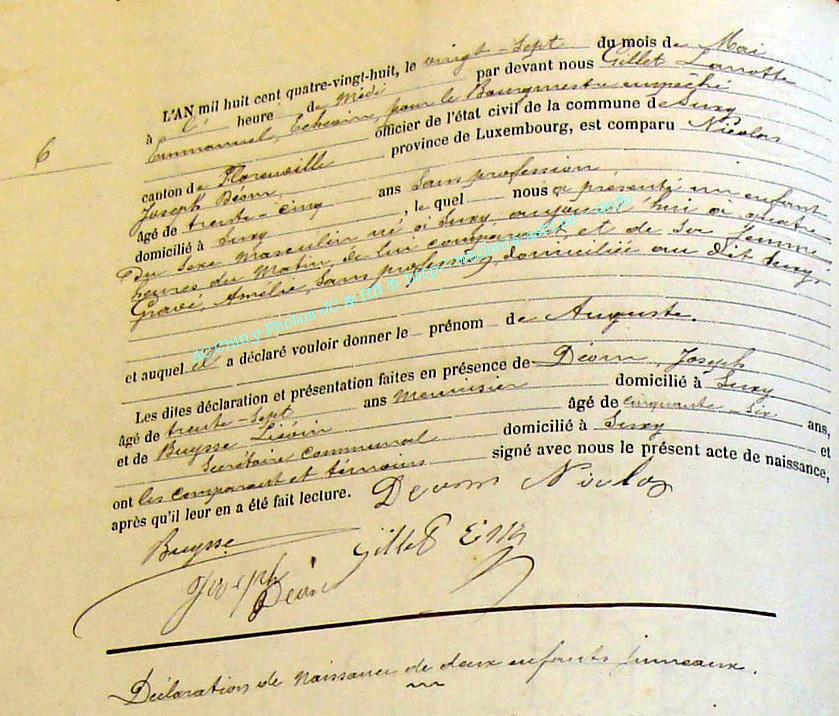 L'AN mil huit cent quatre-vingt-huit, le vingt-sept du mois de Mai
à l' heure de Midi par devant nous Gillet Lanotte
Emmanuel, Echevin, pour le Bourgmestre empêché
officier de l'état civil de la commune de Suxy
canton de Florenville province de Luxembourg, est comparu Nicolas
Joseph Déom
âgé de trente-cinq ans Sans profession
domicilié à Suxy, le quel nous a présenté un enfant
du sexe masculin né à Suxy, aujourd'hui à quatre
heures du Matin, de lui comparant, et de sa femme
Gravé, Amélie, sans profession, domiciliée au dit Suxy,
et auquel il a déclaré vouloir donner le prénom de Auguste.
Les dites déclaration et présentation faites en présence de Déom, Joseph
âgé de trente-sept ans Menuisier domicilié à Suxy
et de Buysse âgé de cinquante-six ans,
Secrétaire Communal domicilié à Suxy et
ont les comparant et témoins signé avec nous le présent acte de naissance,
après qu'il leur en a été fait lecture.
Deom Nicolas
Buysse
Gillet Em
Joseph
Déom
6
Déclaration de naissance de deux enfants jumeaux.